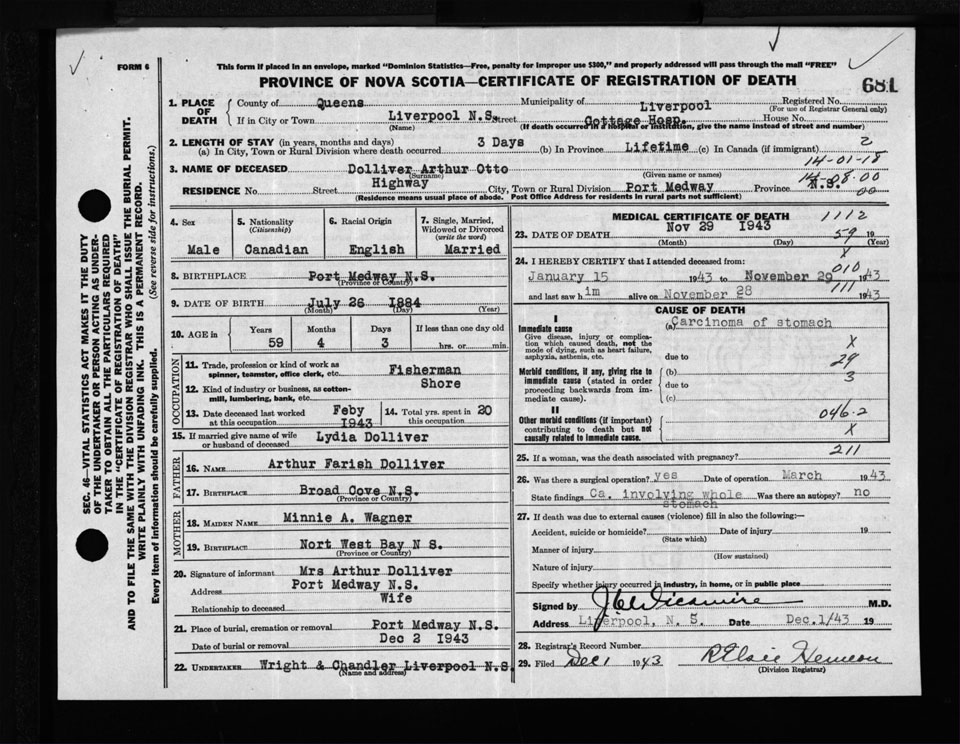 FORM 6
This form if placed in an envelope, marked "Dominion Statistics—Free, penalty for improper use $300," and properly addressed will pass through the mail "FREE"
PROVINCE OF NOVA SCOTIA—CERTIFICATE OF REGISTRATION OF DEATH
681
1. PLACE OF DEATH
County of Queens Municipality of Liverpool Registered No.
(For use of Registrar General only)
If in City or Town Liverpool N.S. Street Cottage Hosp. House No.
(Name) (If death occurred in a hospital or institution, give the name instead of street and number)
2. LENGTH OF STAY (in years, months and days)
(a) In City, Town or Rural Division where death occurred 3 Days (b) In Province Lifetime (c) In Canada (if immigrant) 2
14-01-18
3. NAME OF DECEASED Dolliver Arthur Otto
(Surname) (Given name or names)
14-08-00
RESIDENCE No. Street Highway City, Town or Rural Division Port Medway Province N.S.
00
(Residence means usual place of abode. Post Office Address for residents in rural parts not sufficient)
4. Sex
Male
5. Nationality (Citizenship)
Canadian
6. Racial Origin
English
7. Single, Married, Widowed or Divorced (write the word)
Married
8. BIRTHPLACE Port Medway N.S.
(Province or Country)
9. DATE OF BIRTH July 26 1884
(Month) (Day) (Year)
10. AGE in
Years Months Days If less than one day old
59 4 3 hrs. or min.
OCCUPATION
11. Trade, profession or kind of work as spinner, teamster, office clerk, etc. Fisherman
12. Kind of industry or business, as cotton-mill, lumbering, bank, etc. Shore
13. Date deceased last worked at this occupation Feby 1943
14. Total yrs. spent in this occupation 20
15. If married give name of wife or husband of deceased Lydia Dolliver
FATHER
16. NAME Arthur Farish Dolliver
17. BIRTHPLACE Broad Cove N.S.
(Province or Country)
MOTHER
18. MAIDEN NAME Minnie A. Wagner
19. BIRTHPLACE Nort West Bay N S.
(Province or Country)
20. Signature of informant Mrs Arthur Dolliver
Address Port Medway N.S.
Relationship to deceased Wife
21. Place of burial, cremation or removal Port Medway N.S.
Date of burial or removal Dec 2 1943
22. UNDERTAKER Wright & Chandler Liverpool N.S.
(Name and address)
MEDICAL CERTIFICATE OF DEATH
1112
23. DATE OF DEATH Nov 29 1943 59 19
(Month) (Day) (Year)
X
24. I HEREBY CERTIFY that I attended deceased from:
010
January 15 1943 to November 29 1943
111
and last saw him alive on November 28 1943
CAUSE OF DEATH
I
Immediate cause
Give disease, injury or complication which caused death, not the mode of dying, such as heart failure, asphyxia, asthenia, etc.
(a) Carcinoma of stomach
X
due to
29
Morbid conditions, if any, giving rise to immediate cause (stated in order proceeding backwards from immediate cause).
(b)
3
due to
(c)
II
Other morbid conditions (if important) contributing to death but not causally related to immediate cause.
046.2
X
211
25. If a woman, was the death associated with pregnancy?
26. Was there a surgical operation? yes Date of operation March 1943
State findings Ca. involving whole stomach Was there an autopsy? no
27. If death was due to external causes (violence) fill in also the following:—
Accident, suicide or homicide? Date of injury 19
(State which)
Manner of injury
(How sustained)
Nature of injury
Specify whether injury occurred in industry, in home, or in public place
Signed by M.D.
Address Liverpool, N. S. Date Dec.1/43 19
28. Registrar's Record Number
29. Filed Dec 1 1943
(Division Registrar)
SEC. 46—VITAL STATISTICS ACT MAKES IT THE DUTY
OF THE UNDERTAKER OR PERSON ACTING AS UNDER-
TAKER TO OBTAIN ALL THE PARTICULARS REQUIRED
IN THE "CERTIFICATE OF REGISTRATION OF DEATH"
AND TO FILE THE SAME WITH THE DIVISION REGISTRAR WHO SHALL ISSUE THE BURIAL PERMIT.
WRITE PLAINLY WITH UNFADING INK. THIS IS A PERMANENT RECORD.
Every item of Information should be carefully supplied. (See reverse side for instructions.)